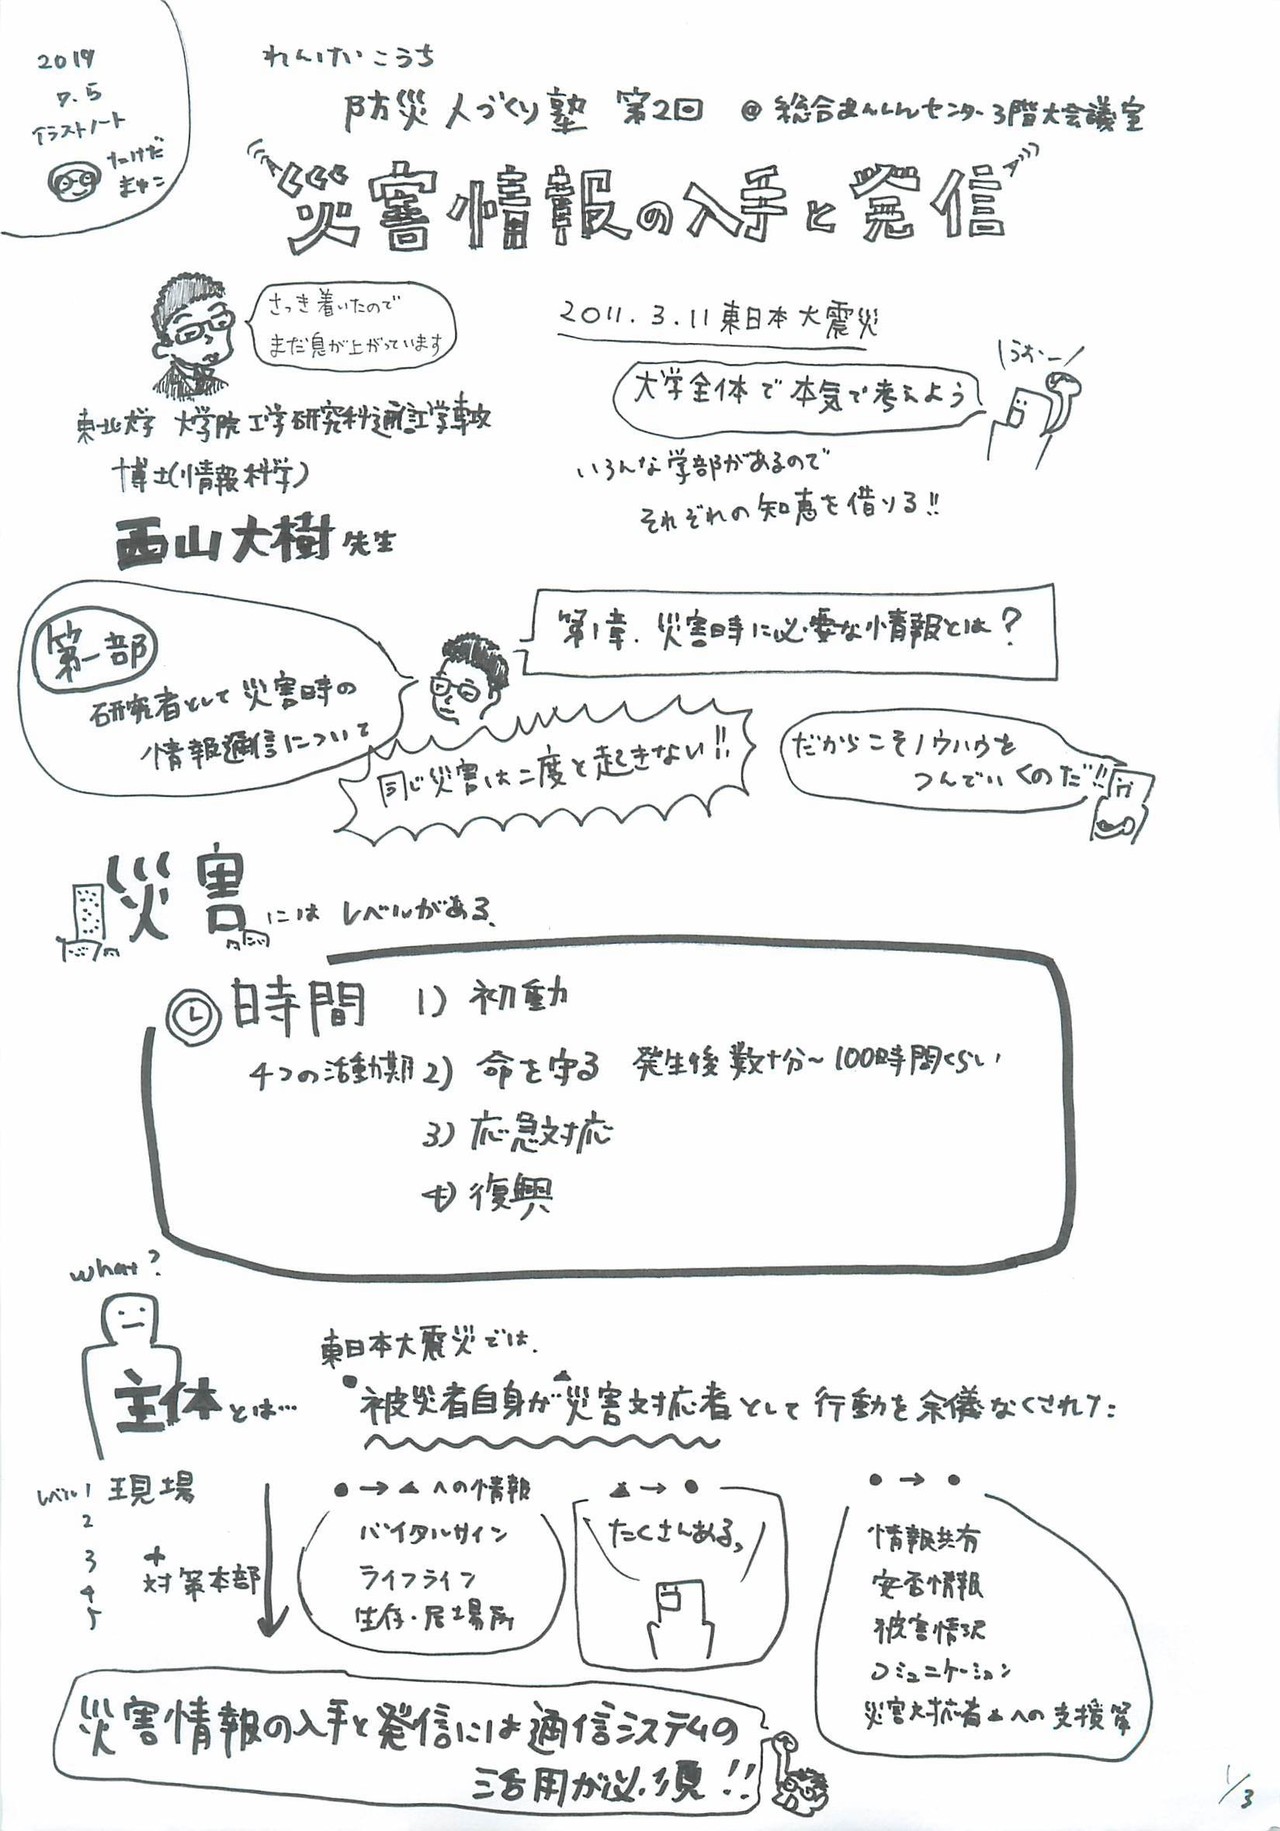 2019
7.5
イラストノート
たけだ
まゆこ
れんけいこうち
防災人づくり塾 第2回 @ 総合あんしんセンター3階大会議室
災害情報の入手と発信
さっき着いたので
まだ息が上がっています
東北大学 大学院工学研究科通信工学専攻
博士(情報科学)
西山大樹先生
2011.3.11東日本大震災
大学全体で本気で考えよう
うおー
いろんな学部があるので
それぞれの知恵を借りる!!
第一部
研究者として災害時の
情報通信について
第1章.災害時に必要な情報とは?
同じ災害は二度と起きない!!
だからこそノウハウを
つんでいくのだ!!
災害にはレベルがある、
時間 1) 初動
4つの活動期 2) 命を守る 発生後数十分~100時間くらい
3) 応急対応
4) 復興
what?
主体とは…
東日本大震災では、
●被災者自身が▲災害対応者として行動を余儀なくされた
レベル1 現場
2
3 +
4 対策本部
5
●→▲への情報
バイタルサイン
ライフライン
生存・居場所
▲→●
たくさんある、
●→●
情報共有
安否情報
被害情況
コミュニケーション
災害対応者▲への支援策
災害情報の入手と発信には通信システムの
活用が必須!!
1/3